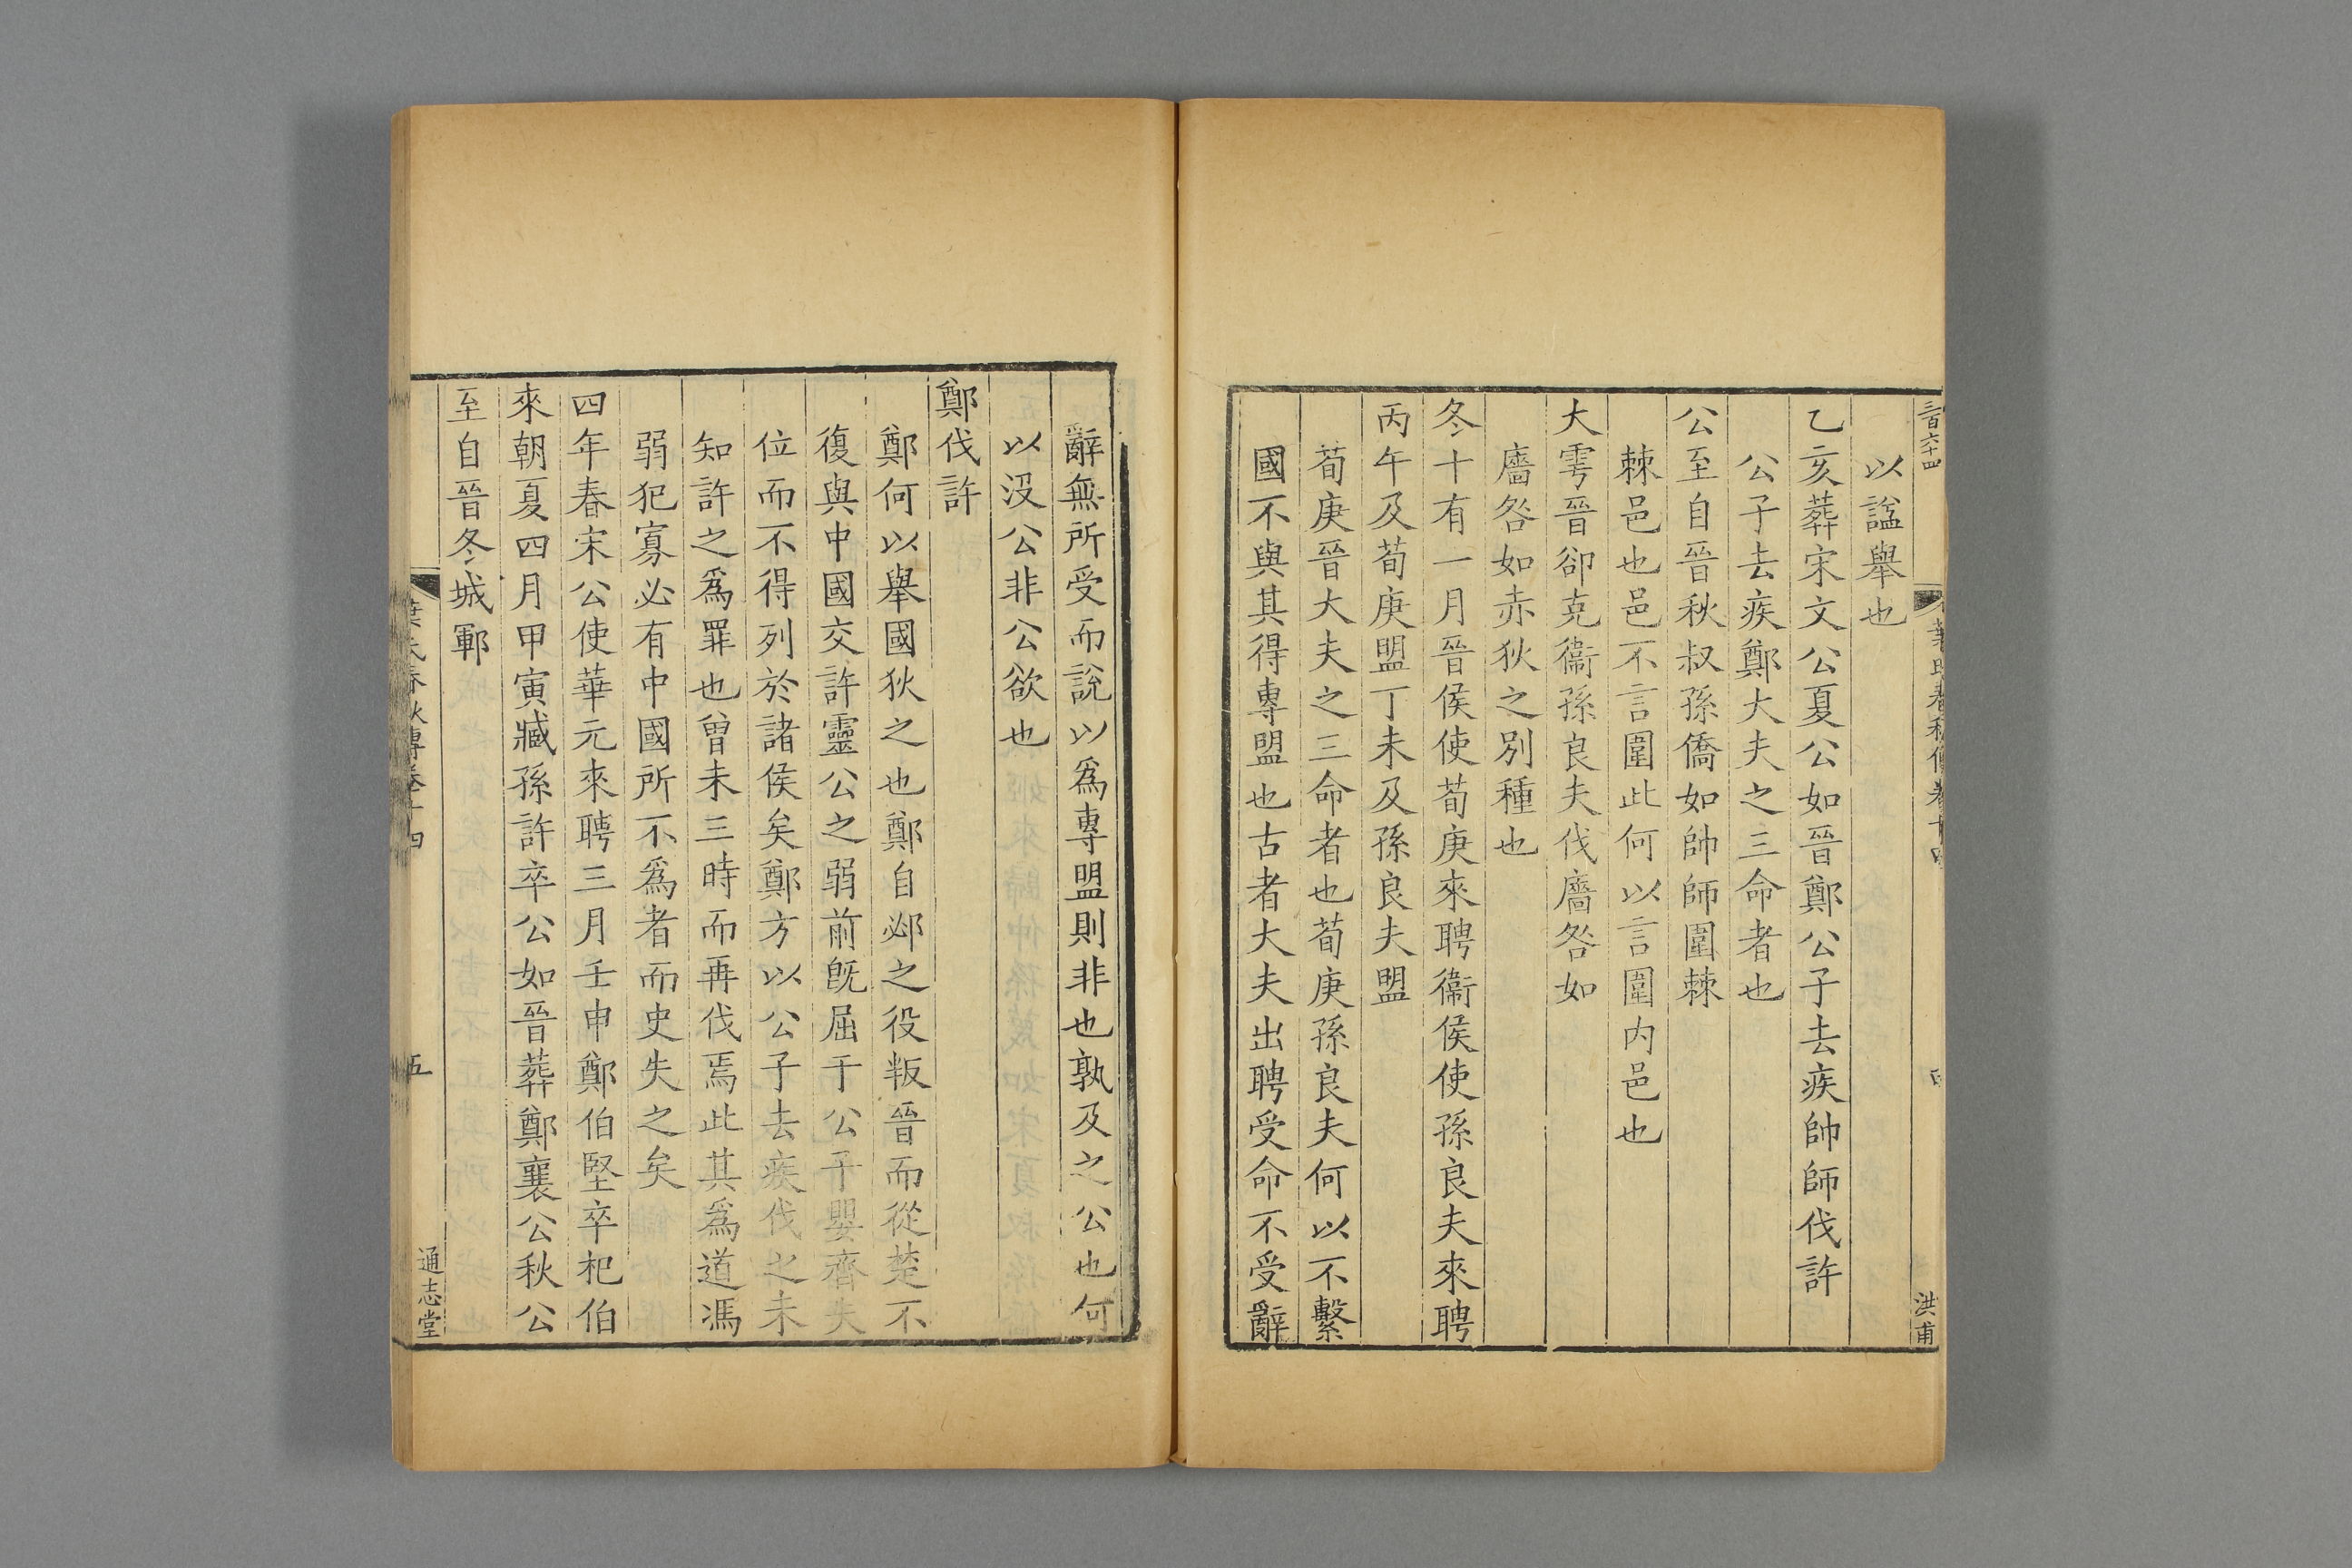 三百六十四
洪甫
以諡舉也
乙亥葬宋文公夏公如晉鄭公子去疾帥師伐許
公子去疾鄭大夫之三命者也
公至自晉秋叔孫僑如帥師圍棘
棘邑也邑不言圍此何以言圍内邑也
大雩晉卻克衞孫良夫伐廧咎如
廧咎如赤狄之別種也
冬十有一月晉侯使荀庚來聘衞侯使孫良夫來聘
丙午及荀庚盟丁未及孫良夫盟
荀庚晉大夫之三命者也荀庚孫良夫何以不繫
國不與其得專盟也古者大夫出聘受命不受辭
辭無所受而說以爲專盟則非也孰及之公也何
以沒公非公欲也
鄭伐許
鄭何以舉國狄之也鄭自邲之役叛晉而從楚不
復與中國交許靈公之弱前旣屈于公子嬰齊失
位而不得列於諸侯矣鄭方以公子去疾伐之未
知許之爲罪也曾未三時而再伐焉此其爲道馮
弱犯寡必有中國所不爲者而史失之矣
四年春宋公使華元來聘三月壬申鄭伯堅卒杞伯
來朝夏四月甲寅臧孫許卒公如晉葬鄭襄公秋公
至自晉冬城鄆
葉氏春秋傳卷十四
五
通志堂